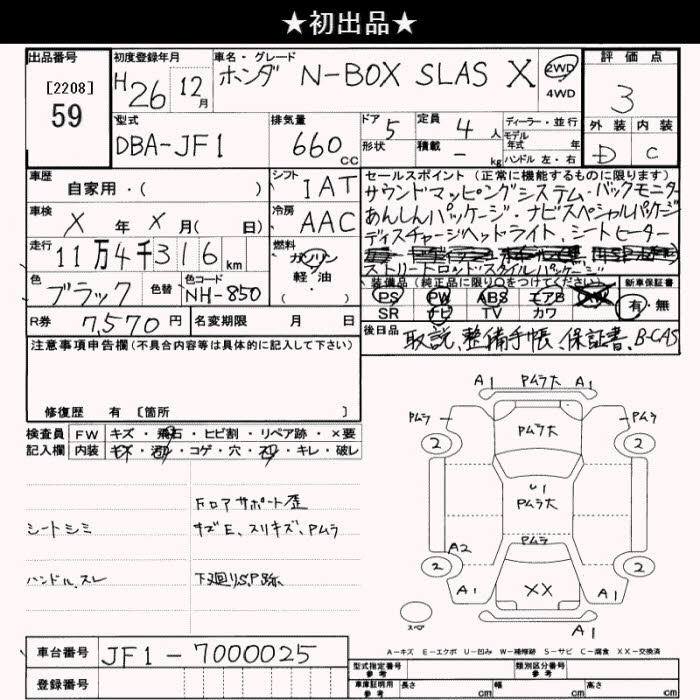 ★初出品★
出品番号
[2208]
59
初度登録年月
H26 12月
車名・グレード
ホンダ N-BOX SLAS X
2WD
4WD
評価点
3
外装 内装
D C
型式
DBA-JF1
排気量
660 cc
ドア 5
形状
定員 4 人
積載 - kg
ディーラー・並行
モデル
年式 年
ハンドル 左・右
車歴
自家用・( )
シフト
IAT
車検
X 年 X 月( 日)
冷房
AAC
走行
11万4千316 km
燃料
ガソリン
軽・油
・( )
色
ブラック
色替
色コード
NH-850
R券
7,570 円
名変期限 月 日
セールスポイント(正常に機能するものに限ります)
サウンドマッピングシステム・バックモニター
あんしんパッケージ・ナビスペシャルパッケージ
ディスチャージヘッドライト、シートヒーター
ストリートロッドスタイルパッケージ
装備品(純正品に限り○をつけてください)
新車保証書
PS PW ABS エアB AW
SR ナビ TV カワ
有・無
後日品
取説、整備手帳、保証書、B-CAS
注意事項申告欄(不具合内容等は具体的に記入して下さい)
修復歴 有 [箇所 ]
検査員
記入欄
FW キズ・飛石・ヒビ割・リペア跡・×要
内装 キズ・汚れ・コゲ・穴・スレ・キレ・破レ
フロアサポート歪
シートシミ
サズE、スリキズ、Pムラ
ハンドル、スレ
下廻り、S、P跡、
A1 Pムラ大 A1
Pムラ Pムラ大 Pムラ
2 2
U1
Pムラ大
Pムラ
A2
2 2
A1 XX A1
A1
スペア
A-キズ E-エクボ U-凹み W-補修跡 S-サビ C-腐食 XX-交換済
車台番号
JF1-7000025
登録番号
型式指定番号
参考
類別区分番号
参考
車庫証明用
参考
長さ cm 幅 cm 高さ cm